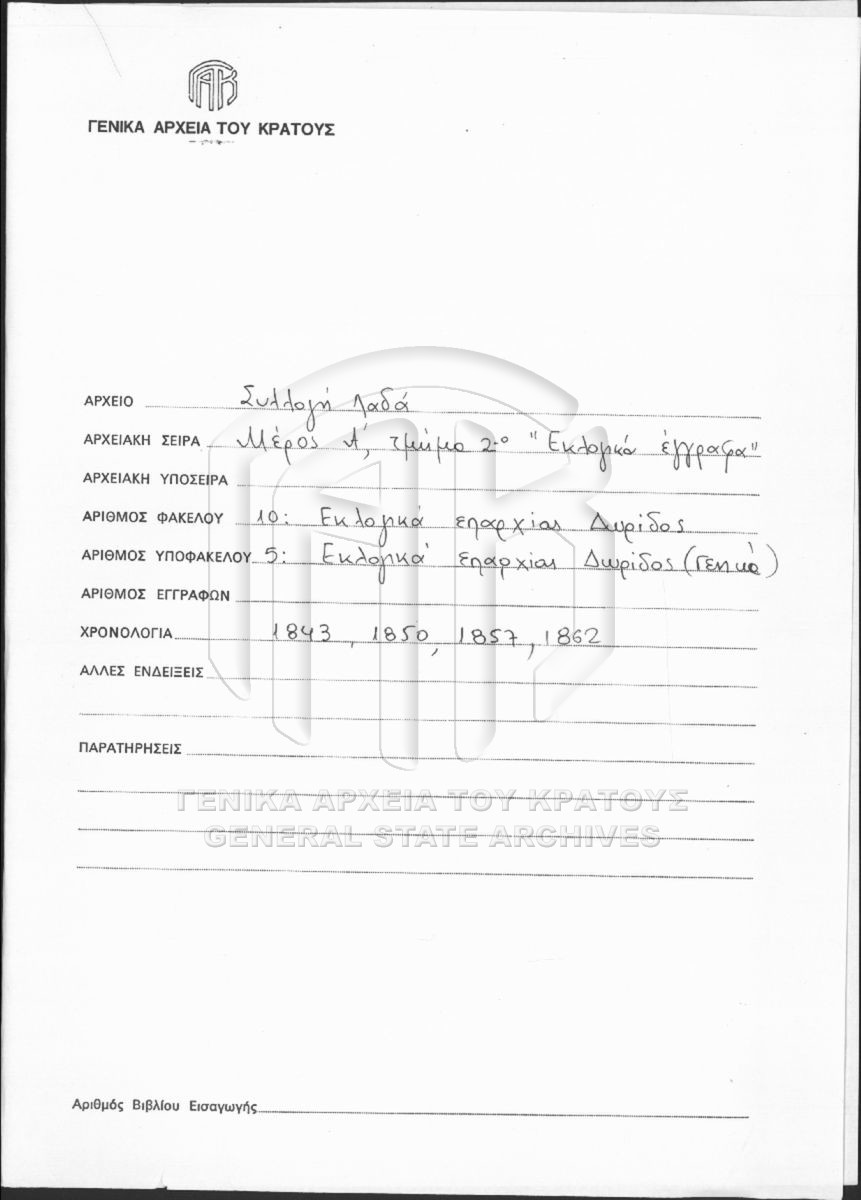 ΓΑΚ
ΓΕΝΙΚΑ ΑΡΧΕΙΑ ΤΟΥ ΚΡΑΤΟΥΣ
ΑΡΧΕΙΟ Συλλογή Λαδά
ΑΡΧΕΙΑΚΗ ΣΕΙΡΑ Μέρος Α', τμήμα 2ο "Εκλογικά έγγραφα"
ΑΡΧΕΙΑΚΗ ΥΠΟΣΕΙΡΑ
ΑΡΙΘΜΟΣ ΦΑΚΕΛΟΥ 10: Εκλογικά επαρχίας Δωρίδος
ΑΡΙΘΜΟΣ ΥΠΟΦΑΚΕΛΟΥ 5: Εκλογικά επαρχίας Δωρίδος (Γενικά)
ΑΡΙΘΜΟΣ ΕΓΓΡΑΦΩΝ
ΧΡΟΝΟΛΟΓΙΑ 1843, 1850, 1857, 1862
ΑΛΛΕΣ ΕΝΔΕΙΞΕΙΣ
ΠΑΡΑΤΗΡΗΣΕΙΣ
ΓΕΝΙΚΑ ΑΡΧΕΙΑ ΤΟΥ ΚΡΑΤΟΥΣ
GENERAL STATE ARCHIVES
Αριθμός Βιβλίου Εισαγωγής